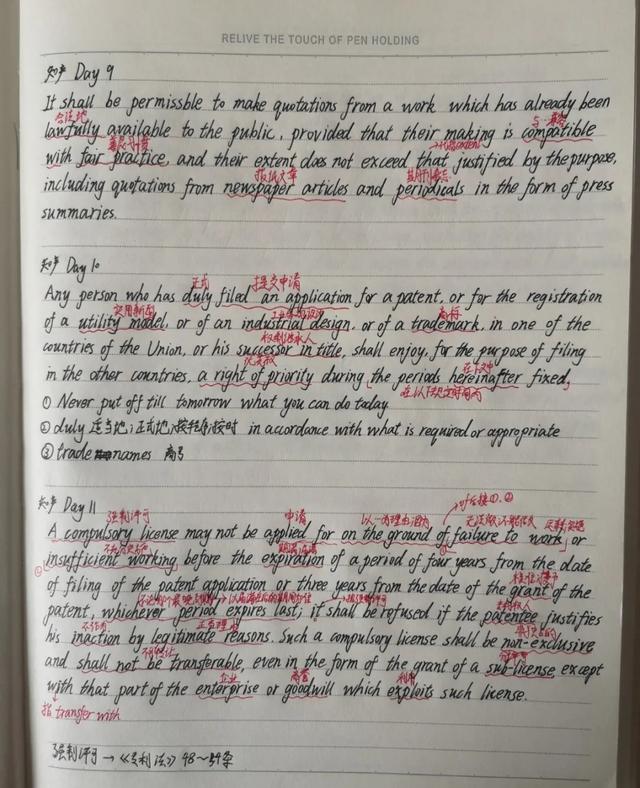 RELIVE THE TOUCH OF PEN HOLDING
知产 Day 9
It shall be permissble to make quotations from a work which has already been
合法地 与…兼容
lawfully available to the public, provided that their making is compatible
with fair practice, and their extent does not exceed that justified by the purpose,
报纸文章
including quotations from newspaper articles and periodicals in the form of press
summaries.
知产 Day 10
正式 提交申请
Any person who has duly filed an application for a patent, or for the registration
实用新型 商标
of a utility model, or of an industrial design, or of a trademark, in one of the
权利继承人
countries of the Union, or his successor in title, shall enjoy, for the purpose of filing
优先权 在下文中
in the other countries, a right of priority during the periods hereinafter fixed,
在以下规定时间内
① Never put off till tomorrow what you can do today
② duly 适当地;正式地;按程序;按时 in accordance with what is required or appropriate
③ trade names 商号
知产 Day 11
强制许可 申请 以…为理由 for后接①,②
A compulsory license may not be applied for on the ground of failure to work or
期限届满
insufficient working before the expiration of a period of four years from the date
of filing of the patent application or three years from the date of the grant of the
专利权人
patent, whichever period expires last; it shall be refused if the patentee justifies
不作为 正当理由
his inaction by legitimate reasons. Such a compulsory license shall be non-exclusive
不可转让
and shall not be transferable, even in the form of the grant of a sub-license, except
企业 商誉 利用
with that part of the enterprise or goodwill which exploits such license.
指 transfer with
强制许可 → 《专利法》48~54条